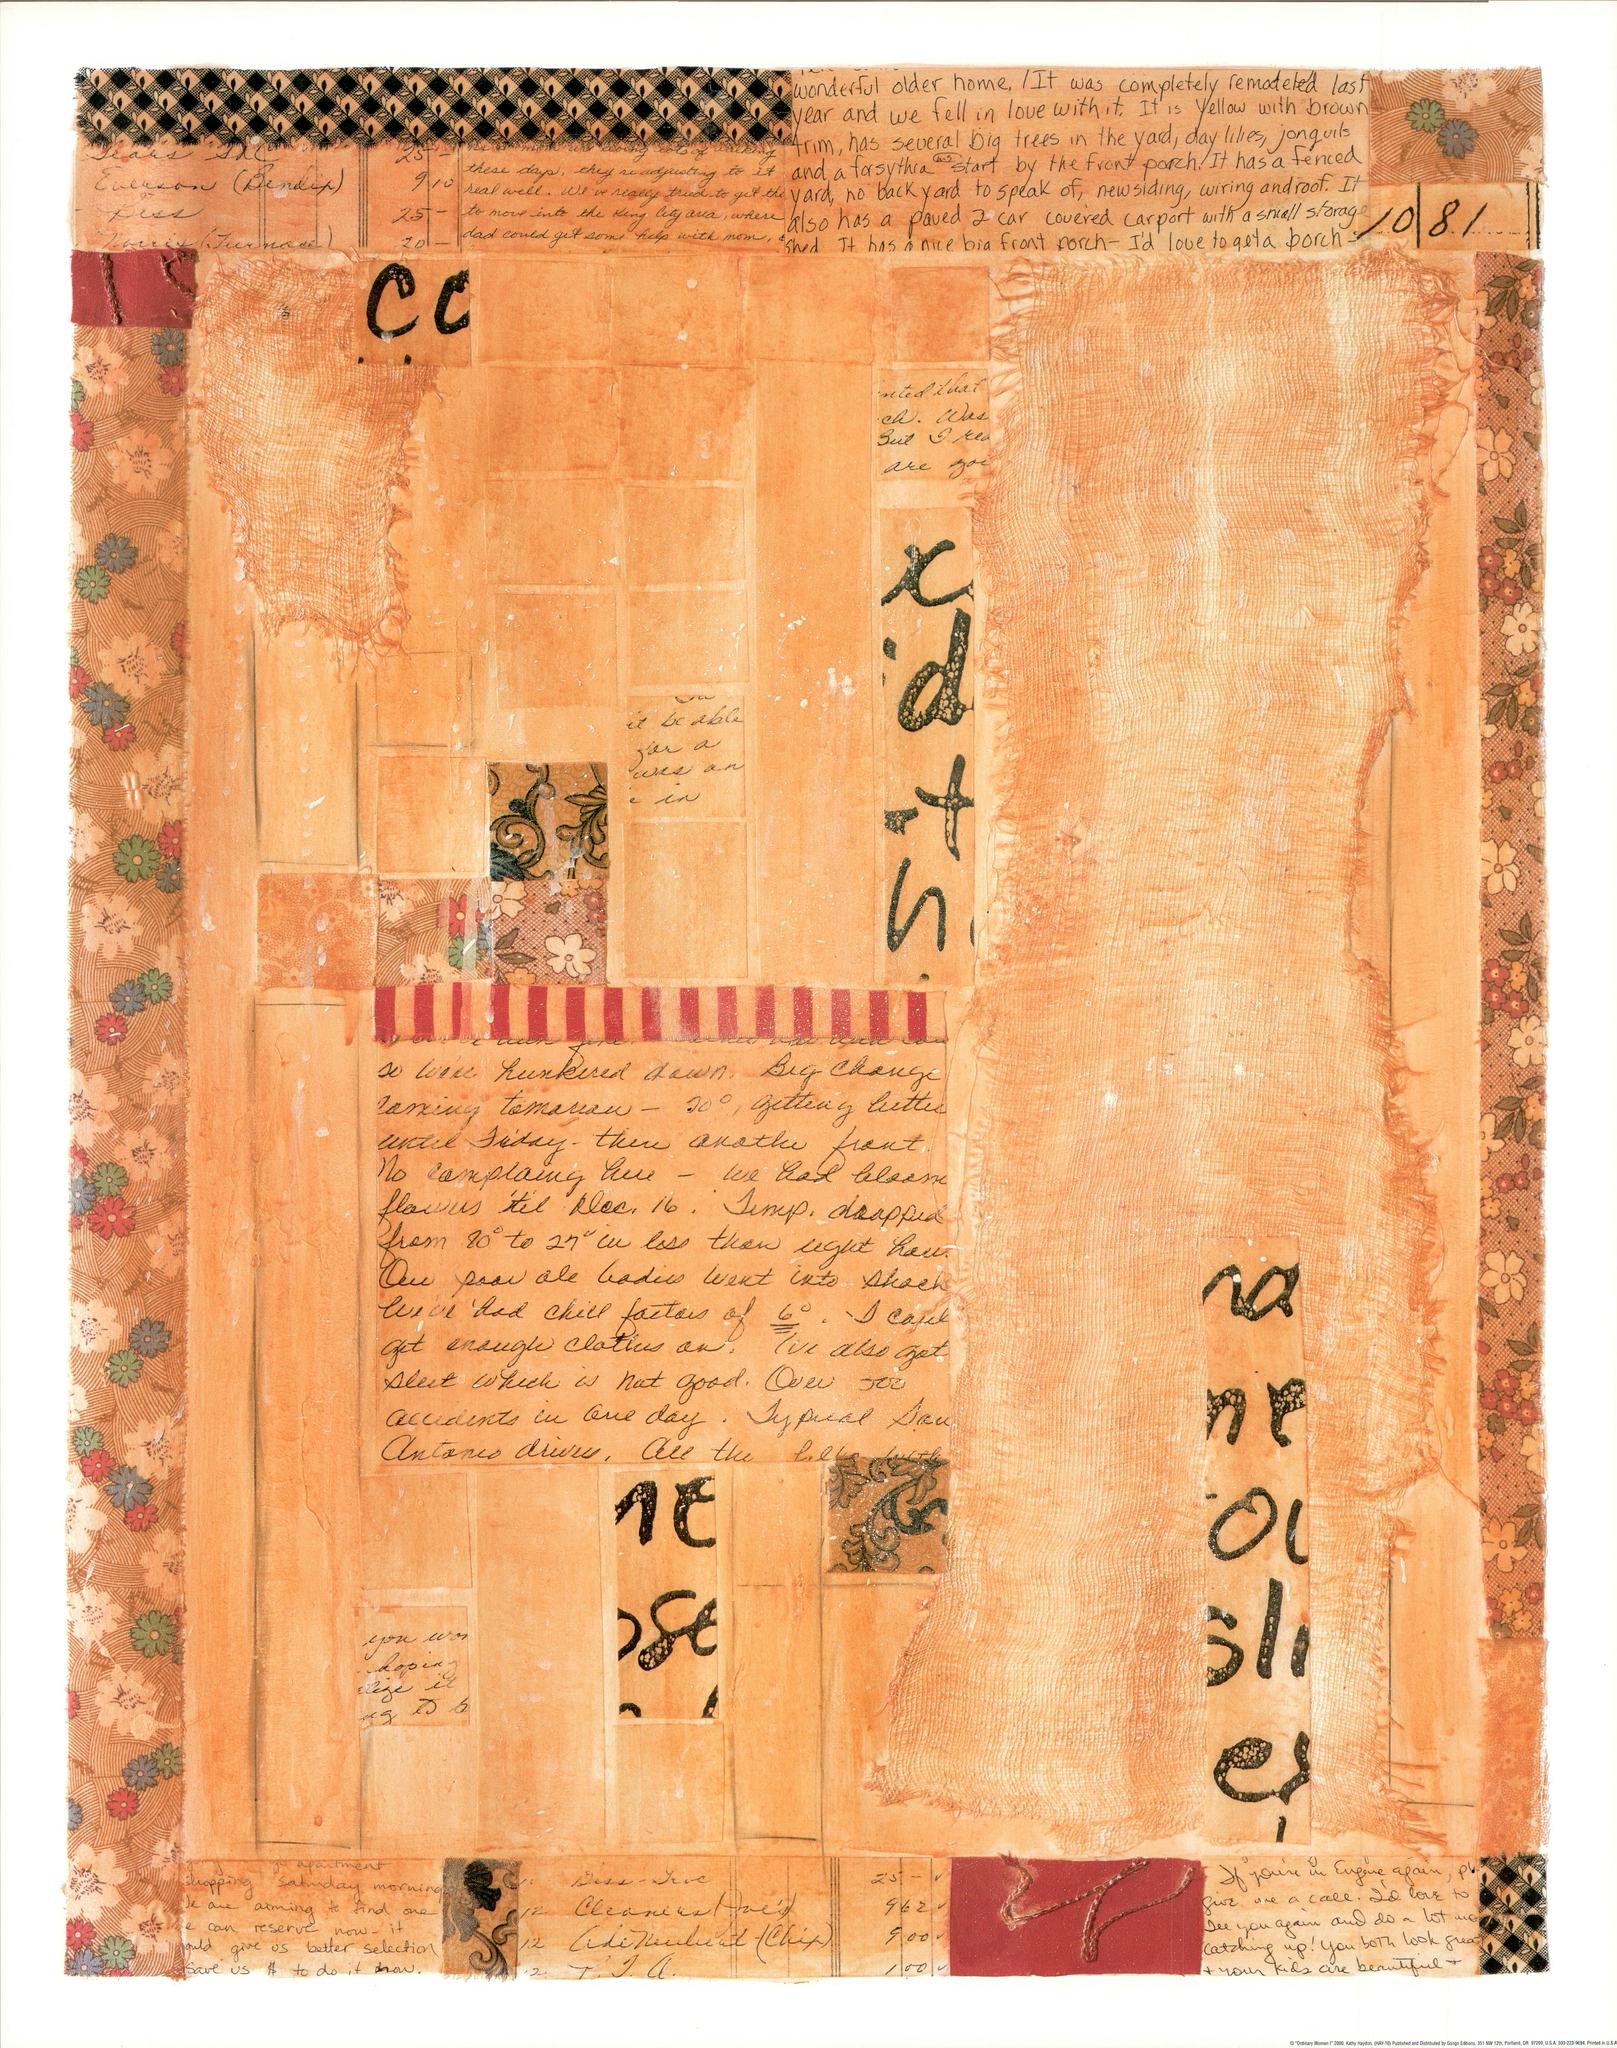 wonderful older home. It was completely remodeled last
year and we fell in love with it. It is yellow with brown
trim, has several big trees in the yard, day lilies, jonquils
and a forsythia start by the front porch. It has a fenced
yard, no back yard to speak of, new siding, wiring and roof. It
also has a paved 2 car covered carport with a small storage
shed. It has a nice big front porch - I'd love to get a porch -
10 81
Sears 25 -
Everson (Bendix) 9 10
Biss 25 -
Norris (Furnace) 20 -
these days, they're adjusting to it
real well. We've really tried to get the
to move into the King City area, where
dad could get some help with mom,
cc
nted that
ch. Was
But I rea
are goi
x
d
t
it be able
for a
was an
e in
so we're hunkered down. Big change
coming tomorrow - 30°, getting better
until Friday - then another front.
No complaing here - we had bloom
flowers 'til Dec. 16. Temp. dropped
from 80° to 27° in less than eight hou
Our poor ole bodies went into shock
We've had chill factors of 6°. I can't
get enough clothes on. I've also got
sleet which is not good. Over 300
accidents in one day. Typical San
Antonio drivers. All the
na
ne
ou
sli
e
ne
ose
you wor
hoping
lize it
ng to b
apartment
shopping Saturday morning
We are aiming to find one
we can reserve now - it
ould give us better selection
save us $ to do it now.
Biss 25 -
12 Cleaners 9 62
12 (Chix) 9 00
12 T. J. A. 1 00
If you're in Eugene again, pl
give me a call. I'd love to
see you again and do a lot mo
catching up! You both look grea
+ your kids are beautiful +
© "Ordinary Women I" 2000, Kathy Haydon, (HAY-10) Published and Distributed by Gango Editions, 351 NW 12th, Portland, OR 97209, U.S.A. 503-223-9694. Printed in U.S.A.